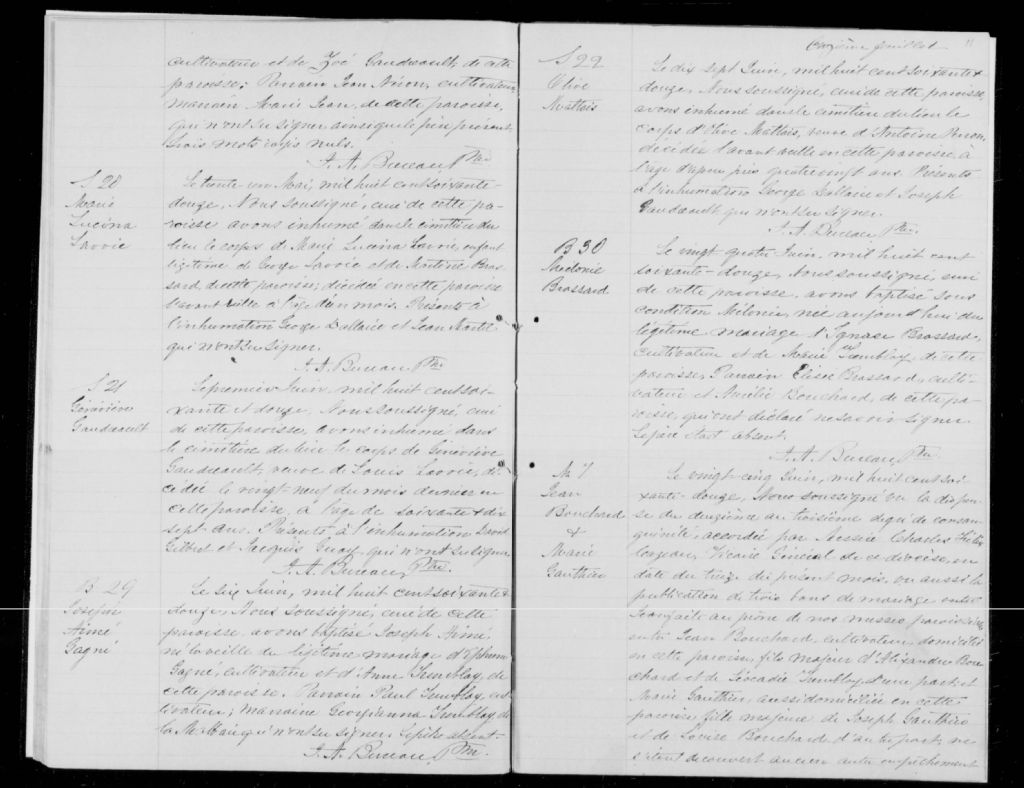 cultivateur et de Zoé Gaudreault de cette
paroisse; Parrain Jean cultivateur
marraine Marie Jean, de cette paroisse,
qui n'ont su signer ainsi que le père présent
trois mots rayés nuls.
A. A. Bureau, Ptre
S 20
Marie
Lucina
Savoie
Le trente un Mai, mil huit cent soixante-
douze, Nous soussigné, curé de cette pa-
roisse avons inhumé dans le cimetière du
lieu le corps de Marie Lucina Savoie, enfant
légitime de George Savoie et de Bras-
sard, de cette paroisse; décédée en cette paroisse
l'avant veille à l'age d'un mois. Présents à
l'inhumation George Dallaire et Jean Martel
qui n'ont su signer.
A. A. Bureau Ptre
S 21
Géneviève
Gaudreault
Le premier Juin, mil huit cent soi-
xante et douze, Nous soussigné, curé
de cette paroisse, avons inhumé dans
le cimetière du lieu le corps de Geneviève
Gaudreault, veuve de Louis Savoie, dé-
cédée le vingt-neuf du mois dernier en
cette paroisse, à l'age de soixante & dix
sept ans. Présents à l'inhumation David
Gilbert et Jacques Guay, qui n'ont su signer.
A. A. Bureau, Ptre
B 29
Joseph
Aimé
Gagné
Le six Juin, mil huit cent soixante &
douze, Nous soussigné, curé de cette
paroisse, avons baptisé Joseph Aimé,
né la veille du légitime mariage d'Ephrem
Gagné, cultivateur et d'Anne Tremblay, de
cette paroisse. Parrain Paul Tremblay, cul-
tivateur; Marraine Georgianna Tremblay, de
la qui n'ont su signer. Le père absent
A. A. Bureau, Ptre
Onzième feuillet
11
S 22
Olive
Mattais
Le dix sept Juin, mil huit cent soixante &
douze, Nous soussigné, curé de cette paroisse,
avons inhumé dans le cimetière du lieu le
corps d'Olive Mattais, veuve d'Antoine
décédée l'avant veille en cette paroisse, à
l'age d'apeu près quatre vingt ans. Présents
à l'inhumation George Dallaire et Joseph
Gaudreault qui n'ont su signer.
A. A. Bureau, Ptre
B 30
Brassard
Le vingt quatre Juin, mil huit cent
soixante-douze, Nous soussigné, curé
de cette paroisse, avons baptisé sous
condition née aujourd'hui du
légitime mariage d'Ignace Brassard,
cultivateur et de Marie Tremblay, de cette
paroisse. Parrain Elisée Brassard, culti-
vateur et Bouchard, de cette pa-
roisse, qui ont déclaré ne savoir signer
Le père étant absent.
A. A. Bureau, Ptre
M 7
Jean
Bouchard
&
Marie
Gauthier
Le vingt-cinq Juin, mil huit cent soi-
xante-douze, Nous soussigné vu la dispen-
se du deuxième au troisième degré de consan-
guinité, accordée par Messire Charles Félix
Cazeau, Vicaire Général de ce diocèse, en
date du treize du présent mois, vu aussi la
publication de trois bans de mariage entre
faite au prône de nos messes paroissiales
entre Jean Bouchard, cultivateur domicilié
en cette paroisse, fils majeur d'Alexandre Bou-
chard et de Léocadie Tremblay d'une part, et
Marie Gauthier, aussi domiciliée en cette
paroisse, fille majeure de Joseph Gauthier
et de Louise Bouchard d'autre part, ne
s'étant découvert aucun autre empêchement